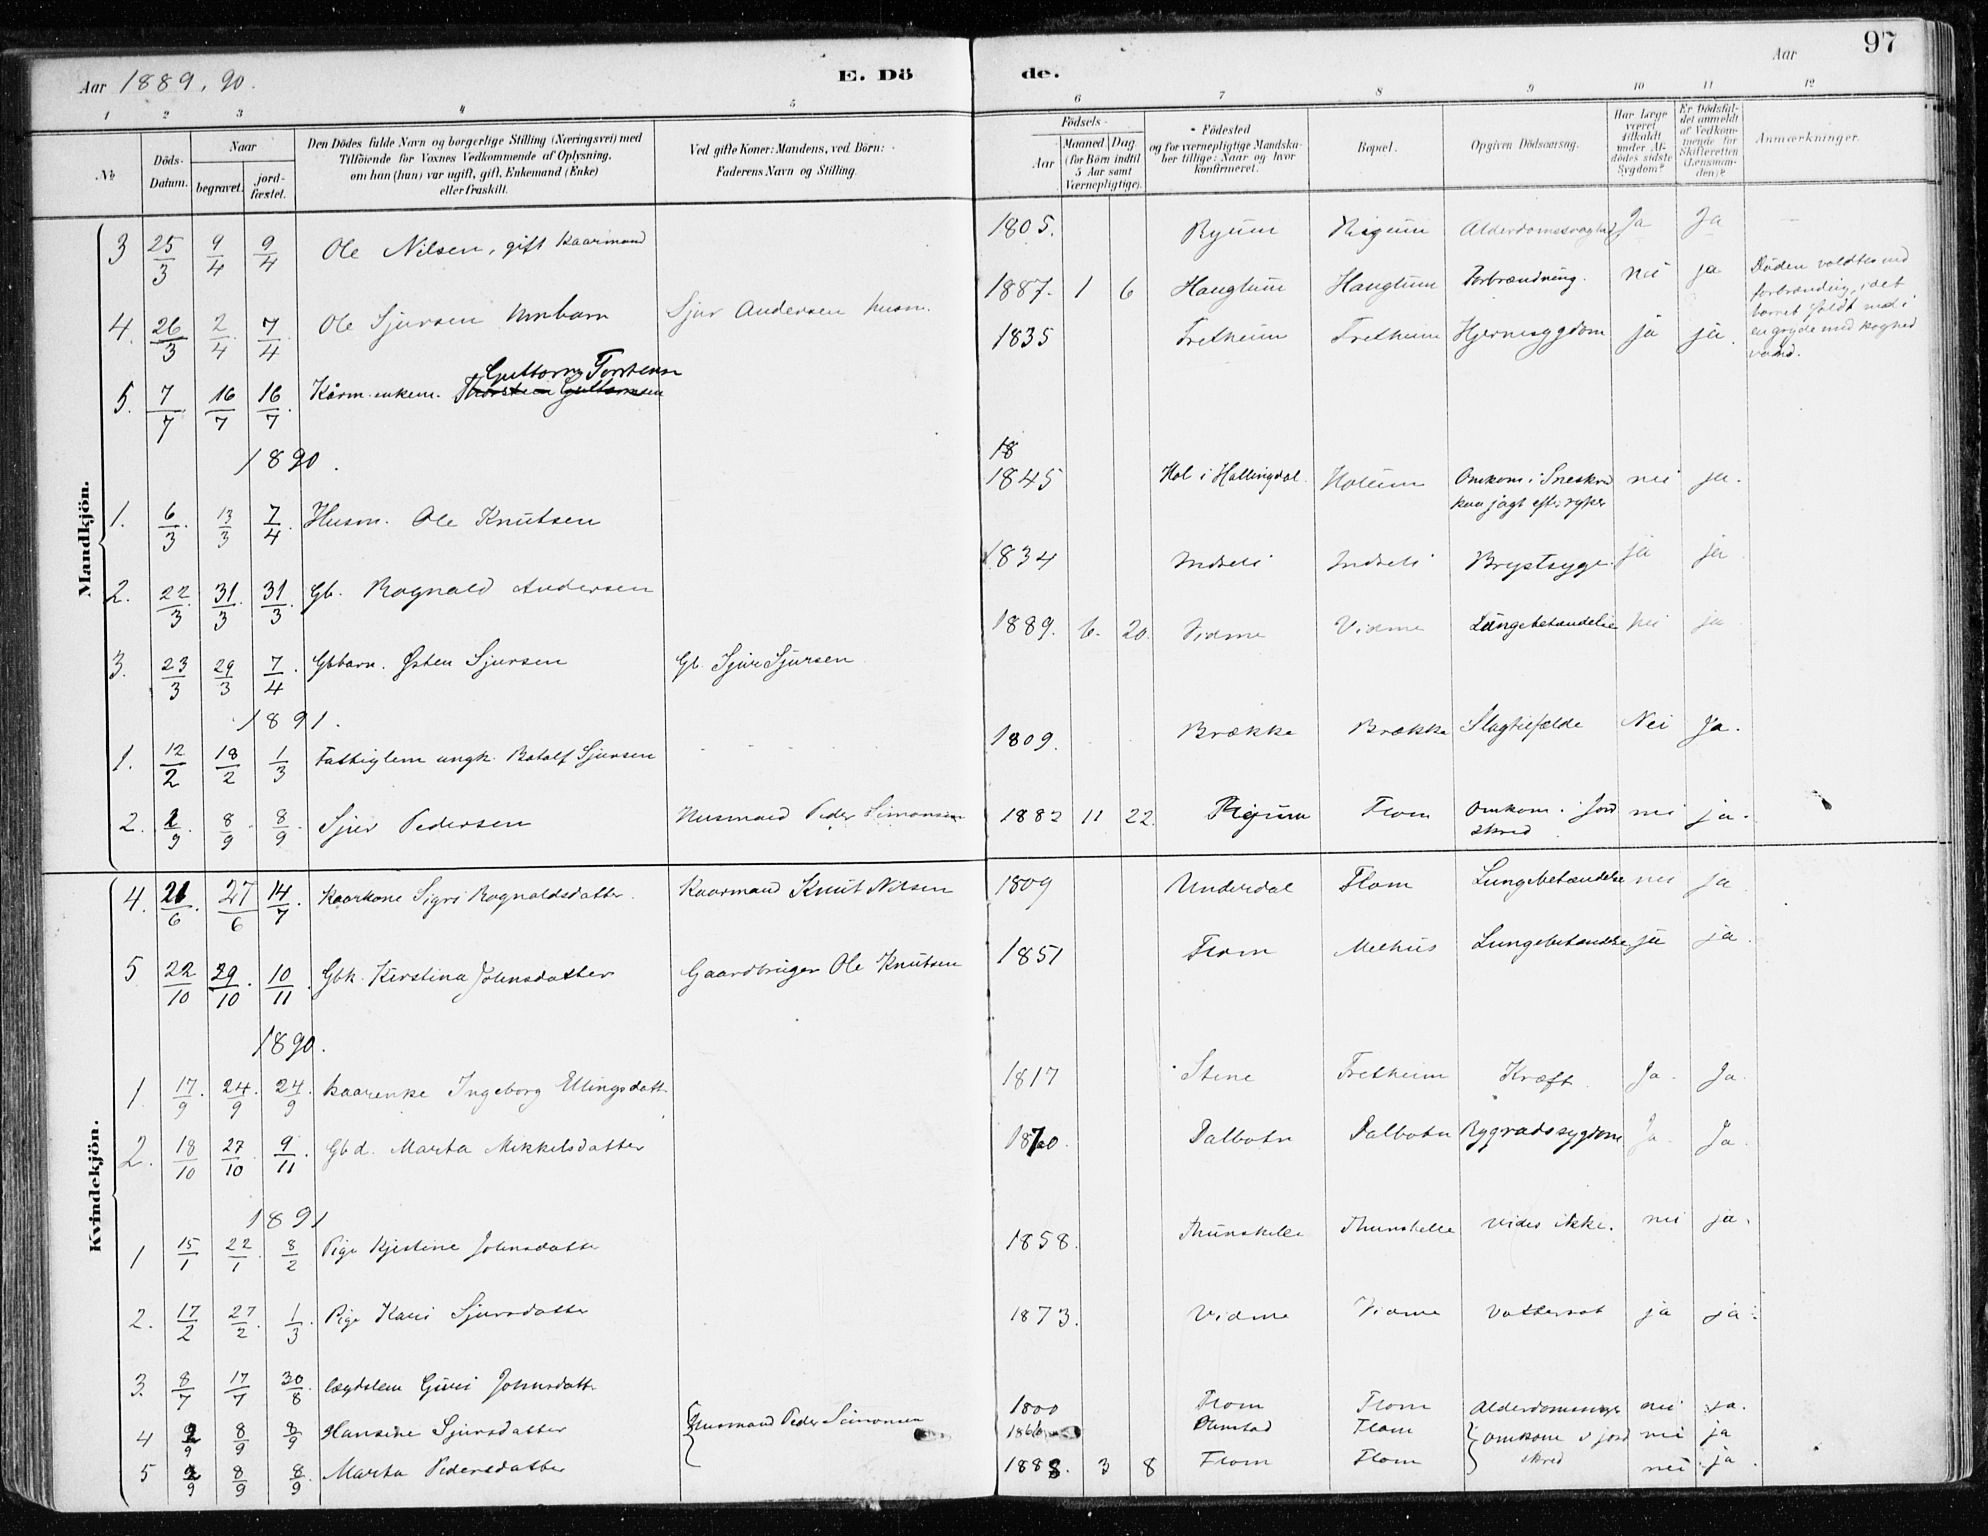 Aar 1889, 90. E. Dö de. Aar 97
1 2 3 4 5 6 7 8 9 10 11 12
№ Döds-Datum. Naar begravet. jord-fæstet. Den Dödes fulde Navn og borgerlige Stilling (Næringsvei) med Tilföiende for Voxnes Vedkommende af Oplysning, om han (hun) var ugift, gift, Enkemand (Enke) eller fraskilt. Ved gifte Koner: Mandens, ved Börn: Faderens Navn og Stilling. Födsels- Aar Maaned Dag (for Börn indtil 5 Aar samt Værnepligtige). Födested og for værnepligtige Mandskaber tillige: Naar og hvor konfirmeret. Bopæl. Opgiven Dödsaarsag. Har Læge været tilkaldt under Afdödes sidste Sygdom? Er Dödsfaldet anmeldt af Vedkommende for Skifteretten (Lensmanden)? Anmærkninger.
Mandkjön.
3 25/3 9/4 9/4 Ole Nilsen, gift kaarmand 1805. Ryum Rigum Alderdomssvaghed Ja Ja —
4. 26/3 2/4 7/4 Ole Sjursen Hmbarn Sjur Andersen husm. 1887. 1 6 Haugtum Haugtum Forbrændning. nei ja Döden voldtes ved forbrænding, idet barnet faldt ned i en gryde med koghed vand.
5. 7/7 16/7 16/7 Kårm. enkem. Thorstein Guttormsen Guttorm Torstensen 1835 Fretheim Fretheim Hjernesygdom ja ja.
1890.
18
1. 6/3 13/3 7/4 Husm. Ole Knutsen 1845 Hol i Hallingdal. Holum Omkom i Sneskred paa jagt efter ryper nei ja.
2. 22/3 31/3 31/3 Gb. Rognald Andersen 1834 Indreli Indreli Brystsyge. ja ja.
3. 23/3 29/3 7/4 Gbbarn. Østen Sjursen Gb. Sjur Sjursen 1889. 6. 20. Vidme Vidme Lungebetændelse nei ja
1891.
1. 12/2 18/2 1/3 Fattiglem ungk. Botolf Sjursen 1809. Brække Brække Slagtilfælde Nei Ja.
2. 2/9 8/9 8/9 Sjur Pedersen Husmand Peder Simonsen 1882 11 22. Rigum Flom Omkom i Jordskred nei ja.
Kvindekjön.
4. 21/6 27/6 14/7 Kaarkone Sigri Rognaldsdatter Kaarmand Knut Nilsen 1809 Underdal Flom Lungebetændelse nei ja
5 22/10 29/10 10/11 Gbk. Kirstina Johnsdatter Gaardbruger Ole Knutsen 1851 Flom Melhus Lungebetændelse ja ja.
1890.
1. 17/9 24/9 24/9 Kaarenke Ingeborg Ellingsdatt. 1817 Stene Fretheim Kræft. Ja. Ja.
2. 18/10 27/10 9/11 Gbd. Marta Mikkelsdatter 1870. Dalbotn Dalbotn Rygradssygdom Ja. Ja.
1891
1 15/1 22/1 8/2 Pige Kjestine Johnsdatter 1858. Thunshelle Thunshelle Vides ikke. nei ja.
2. 17/2 27/2 1/3 Pige Kari Sjursdatter 1873. Vidme Vidme Vattersot ja ja.
3. 8/7 17/7 30/8 Lægdslem Guri Johnsdatt. 1800 Flom Flom nei ja.
4 2/9 8/9 8/9 Hansine Sjursdatter Husmand Peder Simonsen Flom omkom i jordskred nei ja
5 2/9 8/9 8/9 Marta Pedersdatter 1888. 3 8 Flom Flom nei ja.